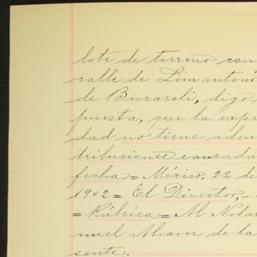 lote de terreno con
calle de Limantour
de Bucareli, digo
puesta, que la expr
dad no tiene adeu
tribuciones causada
fecha = México, 22 de
1902 = El Director, =
= Rúbrica = Al Nota
nuel Alvarez de la
sente.